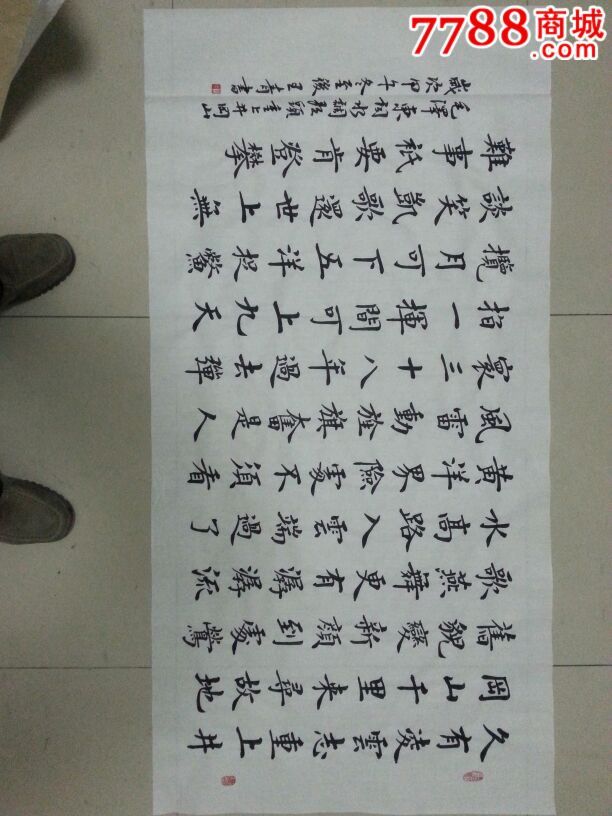 7788商城
.com
久有凌雲志重上井
岡山千里來尋故地
舊貌變新顏到處鶯
歌燕舞更有潺潺流
水高路入雲端過了
黃洋界險處不須看
風雷動旌旗奮是人
寰三十八年過去彈
指一揮間可上九天
攬月可下五洋捉鱉
談笑凱歌還世上無
難事衹要肯登攀
毛澤東詞水調歌頭重上井岡山
歲次甲午冬至後王青書